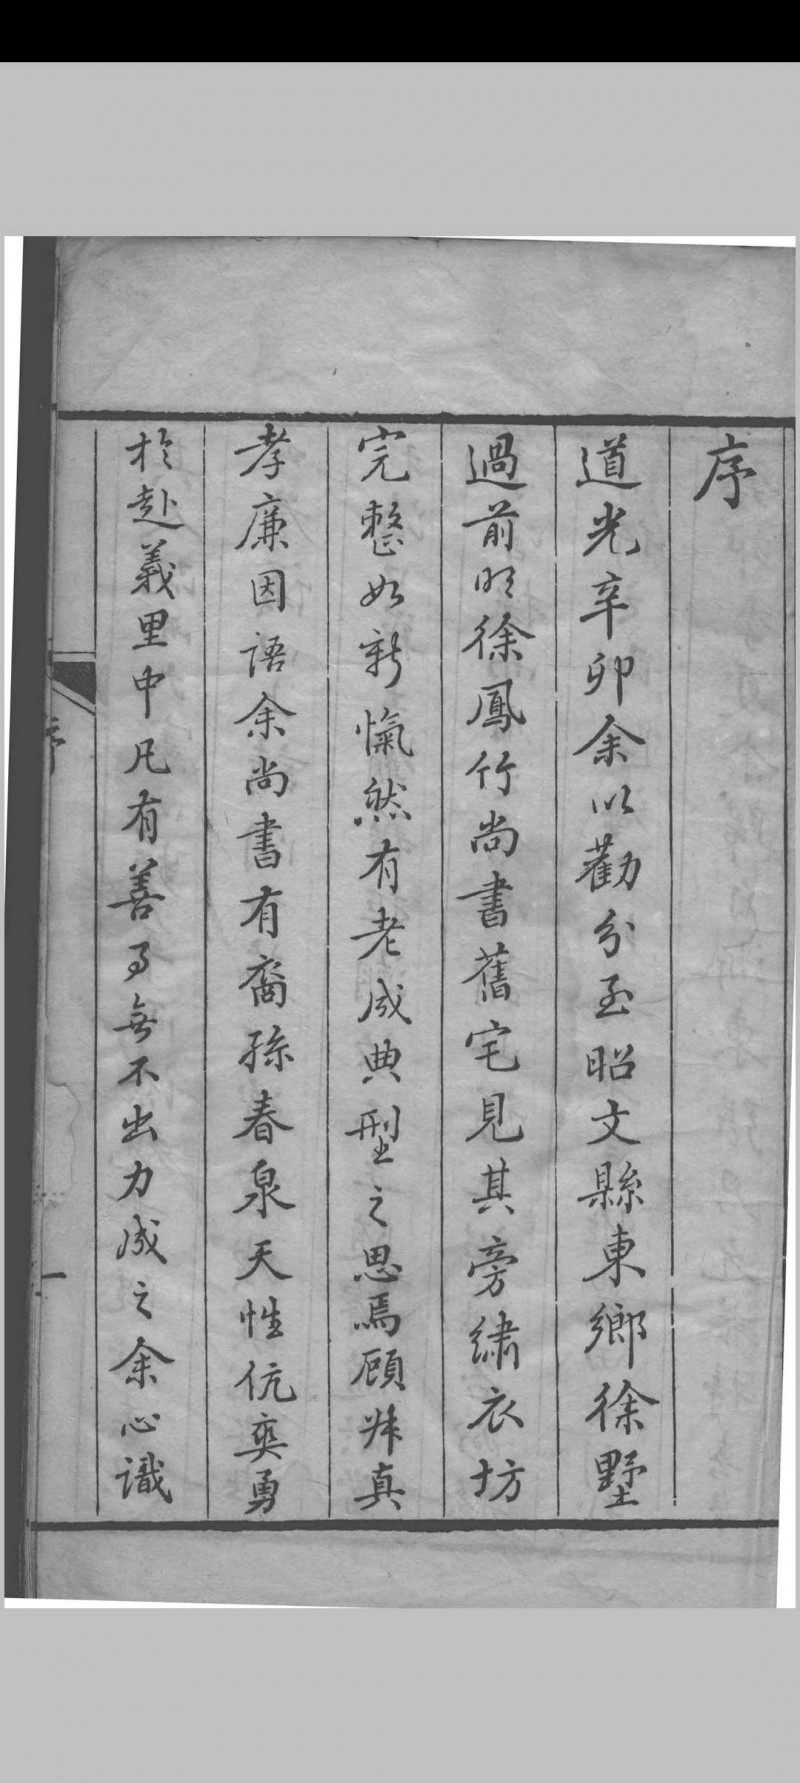 序
道光辛卯余以勸分至昭文縣東鄉徐墅
過前明徐鳳竹尚書舊宅見其旁繡衣坊
完整如新愾然有老成典型之思焉顧竹真
孝廉因語余尚書有裔孫春泉天性伉爽勇
於赴義里中凡有善事無不出力成之余心識
序
一